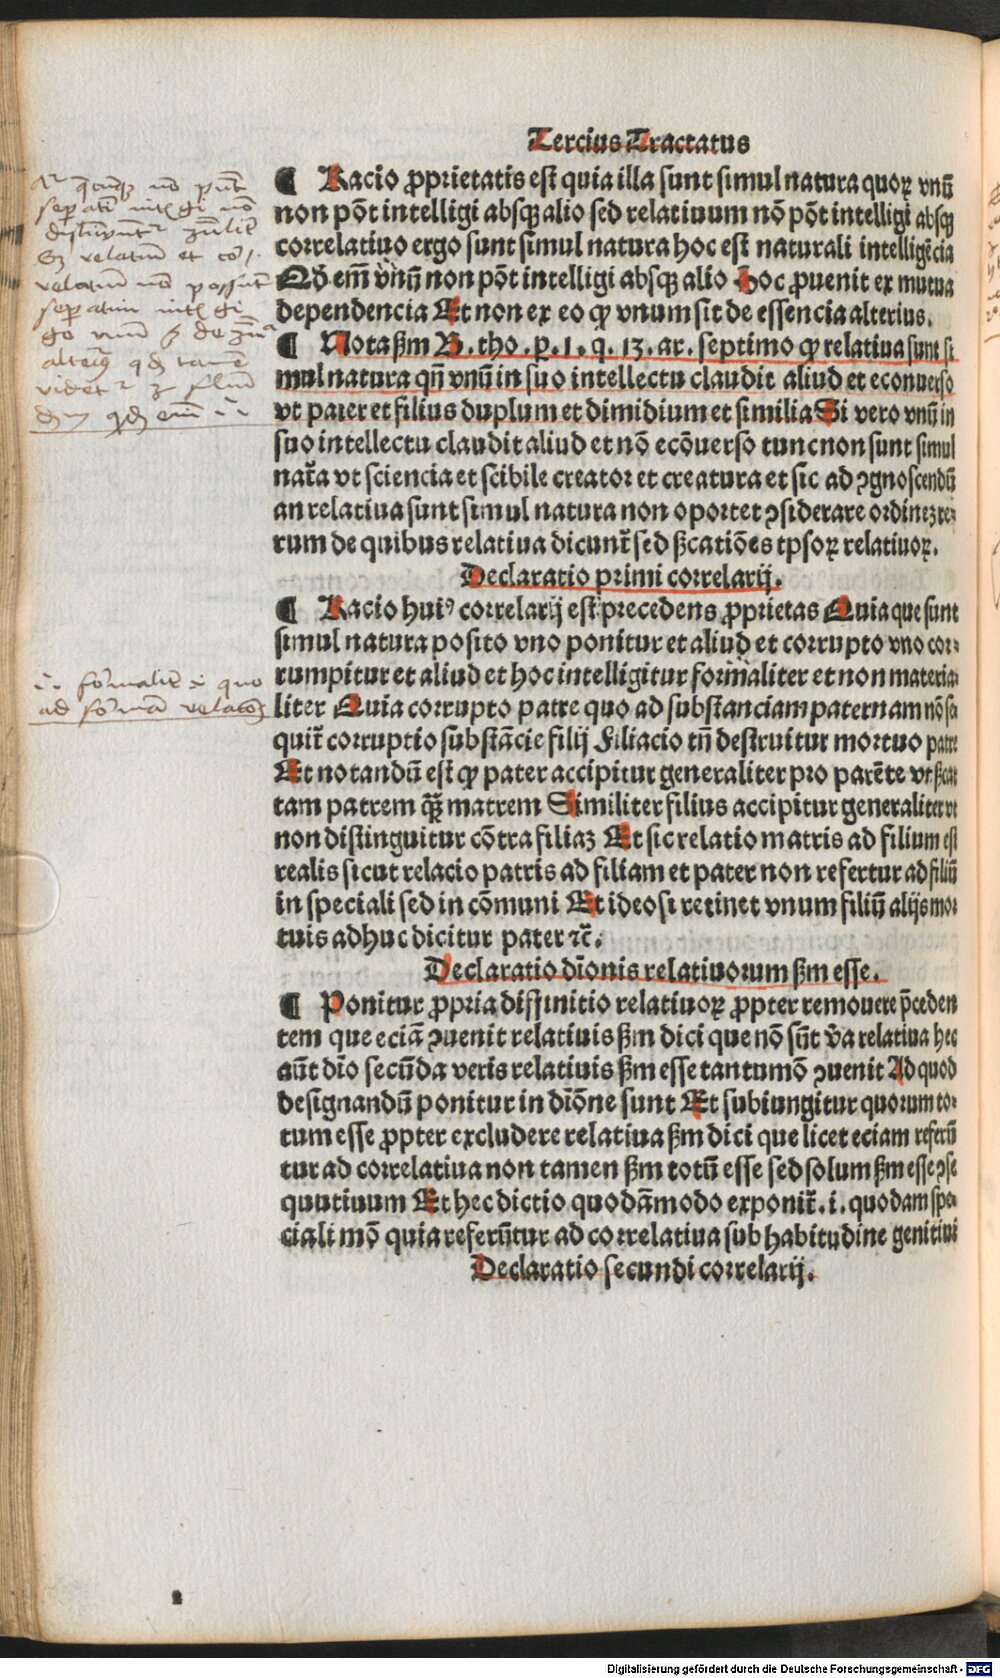 Tercius Tractatus
¶ Racio ꝓprietatis est quia illa sunt simul natura quoꝝ vnū
non pōt intelligi absqꝫ alio sed relatiuum nō pōt intelligi absqꝫ
correlatiuo ergo sunt simul natura hoc est naturali intelligēcia
Qd em̄ vnū non pōt intelligi absqꝫ alio hoc ꝓuenit ex mutua
dependencia Et non ex eo ꝙ vnum sit de essencia alterius.
¶ Nota ẜm B. tho. p. 1. q. 13. ar. septimo ꝙ relatiua sunt si
mul natura qn̄ vnū in suo intellectu claudit aliud et econuerso
vt pater et filius duplum et dimidium et similia Si vero vnū in
suo intellectu claudit aliud et nō ecōuerso tunc non sunt simul
nat̄a vt sciencia et scibile creator et creatura et sic ad ꝯgnoscendū
an relatiua sunt simul natura non oportet ꝯsiderare ordinēz re⸗
rum de quibus relatiua dicunt̄ sed ßcatiōes ipsoꝝ relatiuoꝝ.
Declaratio primi correlarij.
¶ Racio huiꝰ correlarij est precedens ꝓprietas Quia que sunt
simul natura posito vno ponitur et aliud et corrupto vno cor⸗
rumpitur et aliud et hoc intelligitur formaliter et non materia⸗
liter Quia corrupto patre quo ad substanciam paternam nō se
quit̄ corruptio substācie filij Filiacio tn̄ destruitur mortuo patre
Et notandū est ꝙ pater accipitur generaliter pro parēte vt ßcat
tam patrem qꝫ matrem Similiter filius accipitur generaliter vt
non distinguitur cōtra filiaꝫ Et sic relatio matris ad filium est
realis sicut relacio patris ad filiam et pater non refertur ad filiū
in speciali sed in cōmuni Et ideo si retinet vnum filiū alijs mor
tuis adhuc dicitur pater ⁊c̄.
Declaratio diōnis relatiuorum ẜm esse.
¶ Ponitur ꝓpria diffinitio relatiuoꝝ ꝓpter remouere p̄ceden
tem que eciā ꝯuenit relatiuis ẜm dici que nō sūt v̄a relatiua hec
aūt dīo secūda veris relatiuis ẜm esse tantumō ꝯuenit Ad quod
designandū ponitur in diōne sunt Et subiungitur quorum to⸗
tum esse ꝓpter excludere relatiua ẜm dici que licet eciam referū
tur ad correlatiua non tamen ẜm totū esse sed solum ẜm esse ꝯse
quutiuum Et hec dictio quodāmodo exponit̄ .i. quodam spe⸗
ciali mō quia referūtur ad correlatiua sub habitudine genitiui
Declaratio secundi correlarij.